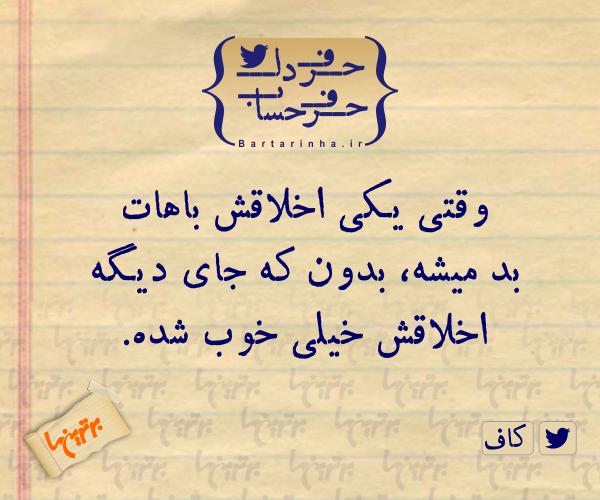 حرف دل
حرف حساب
Bartarinha.ir
وقتی یکی اخلاقش باهات
بد میشه، بدون که جای دیگه
اخلاقش خیلی خوب شده.
برترین‌ها
کاف